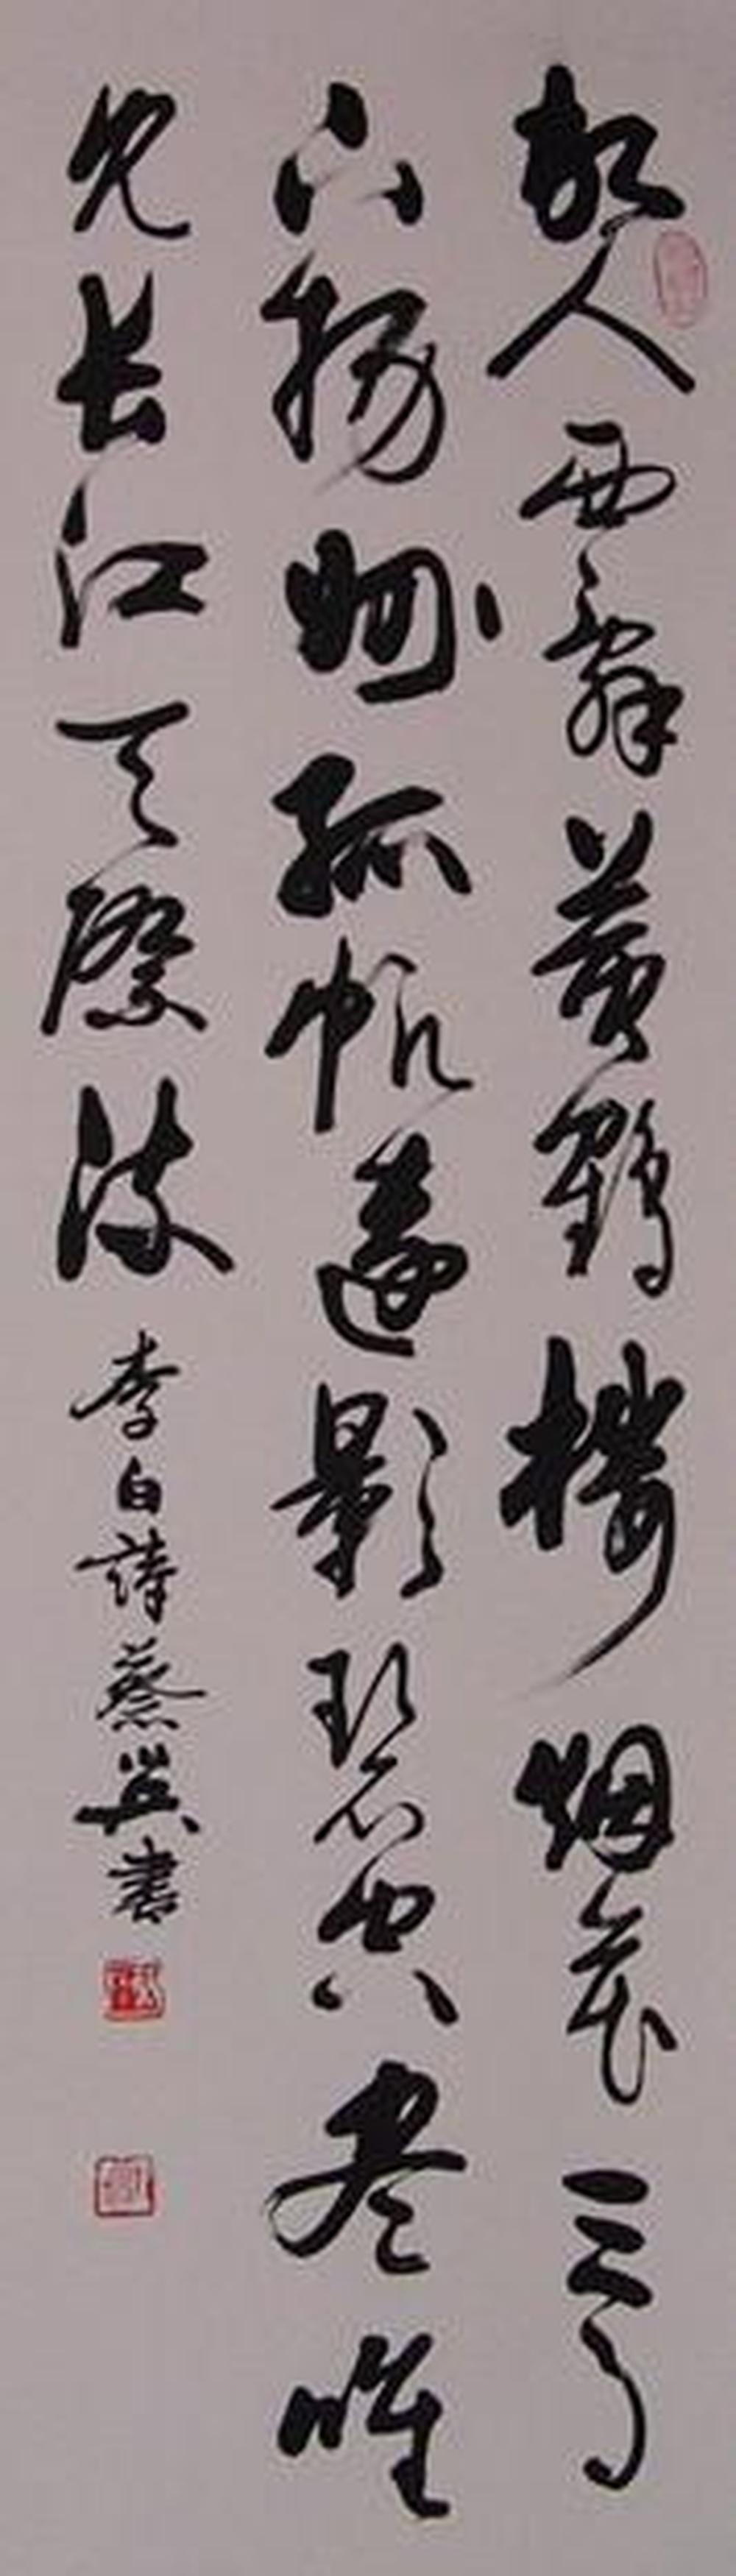 故人西辞黄鹤楼烟花三月
下扬州孤帆远影碧空尽唯
见长江天际流 李白诗 蔡英书